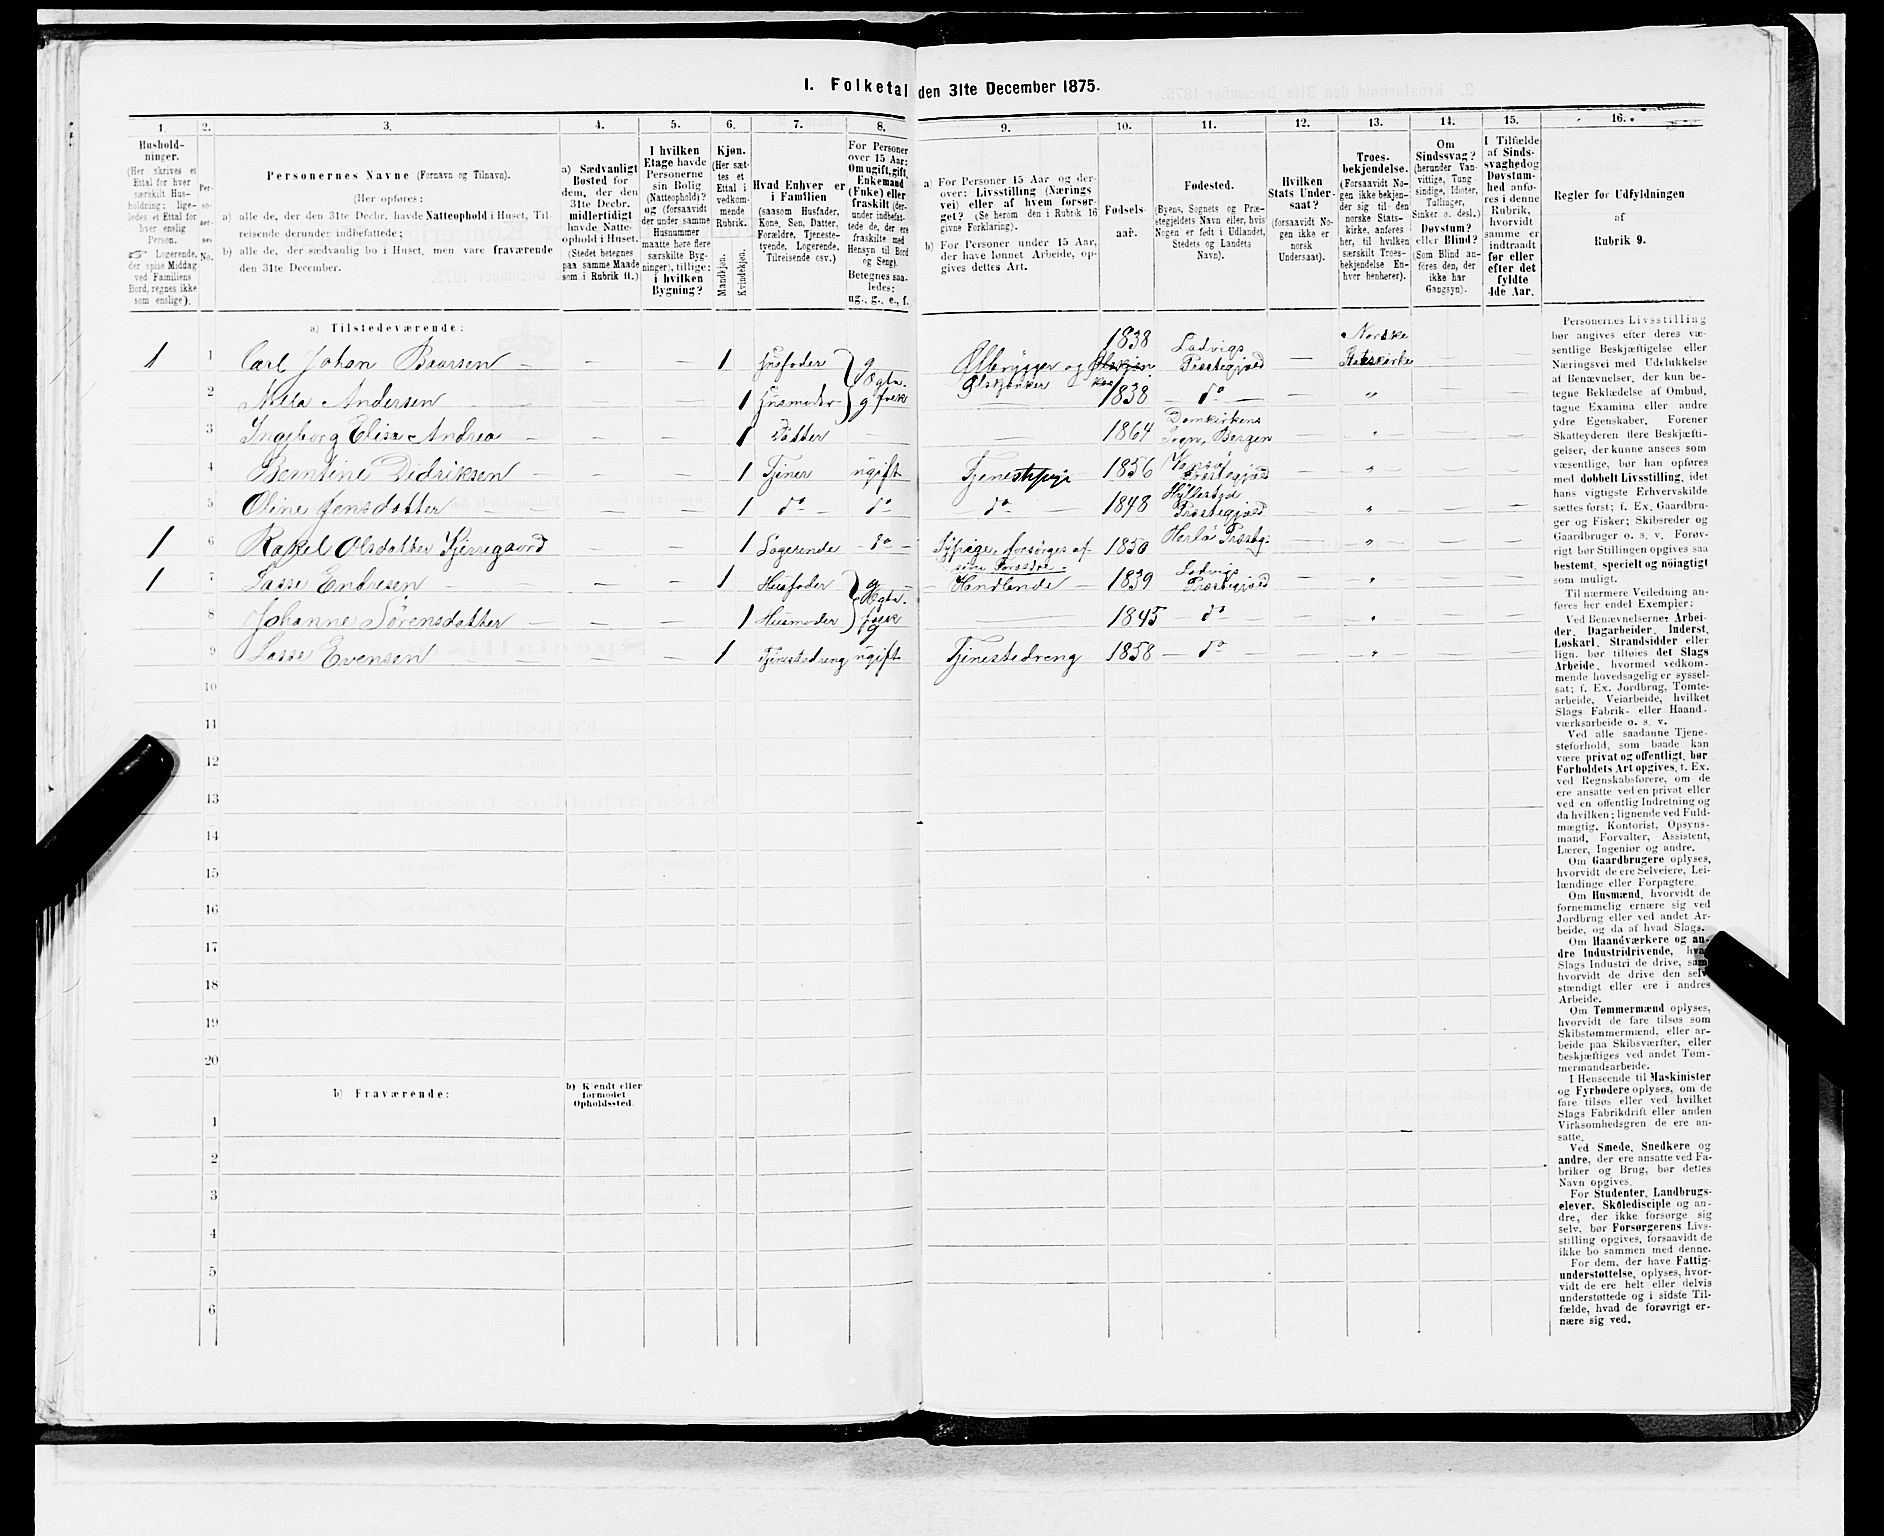 1. Folketal den 31te December 1875.
1. 2. 3. 4. 5. 6. 7. 8. 9. 10. 11. 12. 13. 14. 15. 16.
Hushold-
ninger.
(Her skrives et
Ettal for hver
særskilt Hus-
holdning; lige-
ledes et Ettal for
hver enslig
Person.
☞ Logerende,
der spise Middag
ved Familiens
Bord, regnes ikke
som enslige).
Per-
so-
ner-
nes
No.
Personernes Navne (Fornavn og Tilnavn).
(Her opføres:
a) alle de, der den 31te Decbr. havde Natteophold i Huset, Til-
reisende derunder indbefattede;
b) alle de, der sædvanlig bo i Huset, men vare fraværende
den 31te December.
a) Sædvanligt
Bosted for
dem, der den
31te Decbr.
midlertidigt
havde Natte-
ophold i Huset.
(Stedet betegnes
paa samme Maade
som i Rubrik 11.)
I hvilken
Etage havde
Personerne
sin Bolig
(Natteophold)?
og (forsaavidt
der under samme
Husnummer
maatte høre flere
særskilte Byg-
ninger), tillige:
i hvilken
Bygning?
Kjøn.
(Her sæt-
tes et
Ettal i
vedkom-
mende
Rubrik.
Mandkjøn.
Kvindekjøn.
Hvad Enhver er
i Familien
(saasom Husfader,
Kone, Søn, Datter,
Forældre, Tjeneste-
tyende, Logerende,
Tilreisende osv.)
For Personer
over 15 Aar:
Om ugift, gift,
Enkemand
(Enke) eller
fraskilt (der-
under indbefat-
tede de, der ere
fraskilte med
Hensyn til Bord
og Seng).
Betegnes saa-
ledes:
ug., g., e., f.
a) For Personer 15 Aar og der-
over: Livsstilling (Nærings-
vei) eller af hvem forsør-
get? (Se herom den i Rubrik 16
givne Forklaring).
b) For Personer under 15 Aar,
der have lønnet Arbeide, op-
gives dettes Art.
Fødsels-
aar.
Fødested.
(Byens, Sognets og Præ-
stegjeldets Navn eller, hvis
Nogen er født i Udlandet,
Stedets og Landets
Navn).
Hvilken
Stats Under-
saat?
(forsaavidt No-
gen ikke er
norsk
Undersaat).
Troes-
bekjendelse.
(Forsaavidt No-
gen ikke bekjen-
der sig til den
norske Stats-
kirke, anføres
her, til hvilken
særskilt Troes-
bekjendelse En-
hver henhører).
Om
Sindssvag?
(herunder Van-
vittige, Tung-
sindige, Idioter,
Tullinger,
Sinker o. desl.)
Døvstum?
eller Blind?
(Som Blind an-
føres den, der
ikke har
Gangsyn).
I Tilfælde
af Sinds-
svaghed og
Døvstum-
hed anfø-
res i denne
Rubrik,
hvorvidt
samme er
indtraadt
før eller
efter det
fyldte
4de Aar.
Regler for Udfyldningen
af
Rubrik 9.
a) Tilstedeværende:
1 1 Carl Johan Brorsen — — — 1 Husfader g Ølbrygger og Ølskjenker 1838 Ladvigs Præstegjæld — Norske Statskirke —
2 Andersen — — — 1 Husmoder g Egte-folk 1838 — do — — „ —
3 Ingeborg Elise Andrea — — — 1 Datter — — 1864 Domkirkens Sogn, Bergen — „ —
4 Berntine Didriksen — — — 1 Tjener ugift Tjenestepige 1856 Præstegjæld — „ —
5 Oline Jensdatter — — — 1 do do — do — 1848 Hyllestad Præstegjæld — „ —
1 6 Rakel Olsdatter — — — 1 Logerende — do — forsørges af sine Forældre 1850 Herlø Præstg. — „ —
1 7 Lasse Endresen — — — 1 Husfader g — Handlende — 1839 Ladvigs Præstegjæld — „ —
8 Johanne Sørensdatter — — — 1 Husmoder Egte-folk g — 1845 do — — „ —
9 Lasse Evensen — — — 1 Tjenestedreng ugift Tjenestedreng 1858 — do — — „ —
10
11
12
13
14
15
16
17
18
19
20
b) Fraværende:
b) Kjendt eller
formodet
Opholdssted.
1
2
3
4
5
6
Personernes Livsstilling
bør angives efter deres væ-
sentlige Beskjæftigelse eller
Næringsvei med Udelukkelse
af Benævnelser, der kun be-
tegne Beklædelse af Ombud,
tagne Examina eller andre
ydre Egenskaber. Forener
Skatteyderen flere Beskjæfti-
gelser, der kunne ansees som
væsentlige, bør han opføres
med dobbelt Livsstilling, idet
hans vigtigste Erhvervskilde
sættes forst; f. Ex. Gaardbru-
ger og Fisker; Skibsreder og
Gaardbruger o. s. v. Forøv-
rigt bør Stillingen opgives saa
bestemt, specielt og nøiagtigt
som muligt.
Til nærmere Veiledning an-
føres her endel Exempler:
Ved Benævnelserne Arbei-
der, Dagarbeider, Inderst,
Løskarl, Strandsidder eller
lign. bør tilføies det Slags
Arbeide, hvormed vedkom-
mende hovedsagelig er syssel-
sat; f. Ex. Jordbrug, Tomte-
arbeide, Veiarbeide, hvilket
Slags Fabrik- eller Haand-
værksarbeide o. s. v.
Ved alle saadanne Tjene-
steforhold, som baade kan
være privat og offentligt, bør
Forholdets Art opgives, f. Ex.
ved Regnskabsførere, om de
ere ansatte ved en privat eller
ved en offentlig Indretning og
da hvilken; lignende ved Fuld-
mægtig, Kontorist, Opsyns-
mand, Forvalter, Assistent,
Lærer, Ingeniør og andre.
Om Gaardbrugere oplyses,
hvorvidt de ere Selveiere, Lei-
lændinge eller Forpagtere.
Om Husmænd, hvorvidt de
fornemmelig ernære sig ved
Jordbrug eller ved andet Ar-
beide, og da af hvad Slags.
Om Haandværkere og an-
dre Industridrivende, hvad
Slags Industri de drive, samt
hvorvidt de drive den selv-
stændigt eller ere i andres
Arbeide.
Om Tømmermænd oplyses,
hvorvidt de fare tilsøs som
Skibstømmermænd, eller ar-
beide paa Skibsværfter, eller
beskjæftiges ved andet Tøm-
mermandsarbeide.
I Henseende til Maskinister
og Fyrbødere oplyses, om de
fare tilsøs eller ved hvilket
Slags Fabrikdrift eller anden
Virksomhedsgren de ere an-
satte.
Ved Smede, Snedkere og
andre, der ere ansatte ved Fa-
briker og Brug, bør dettes
Navn opgives.
For Studenter, Landbrugs-
elever, Skoledisciple og an-
dre, der ikke forsørge sig
selv, bør Forsørgerens Livs-
stilling opgives, forsaavidt de
ikke bo sammen med denne.
For dem, der have Fattig-
understøttelse, oplyses, hvor-
vidt de ere helt eller delvis
understøttede og i sidste Til-
fælde, hvad de forøvrigt er-
nære sig ved.